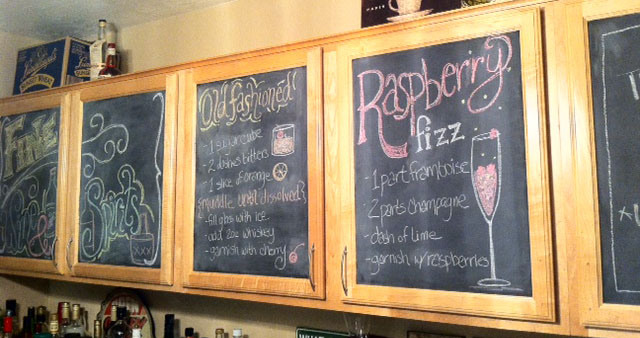 Fine
&
Spirits
Old fashioned
- 1 sugar cube
- 2 dashes bitters
- 1 slice of orange
{muddle until dissolved}
- fill glass with ice
- add 2oz whiskey
- garnish with cherry
Raspberry
fizz
- 1 part framboise
- 2 parts champagne
- dash of lime
- garnish w/raspberries